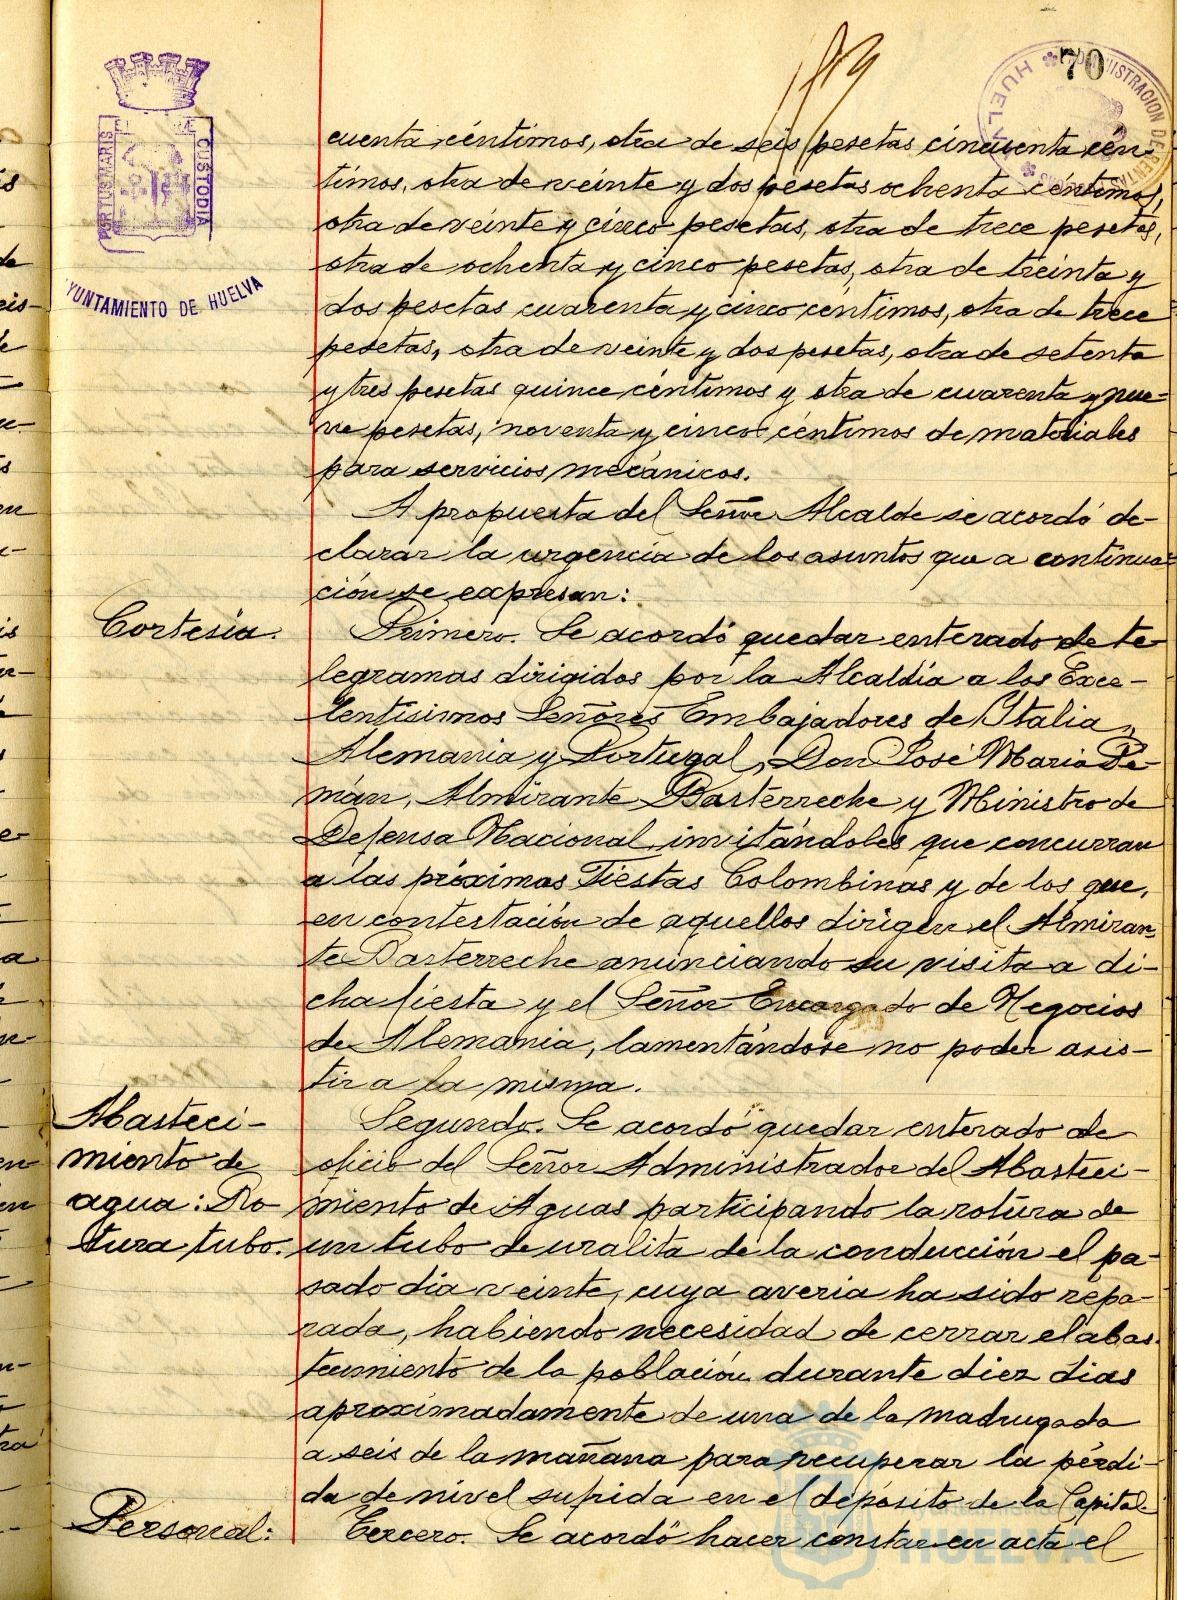 70
PORTUS MARIS
ET TERRÆ
CUSTODIA
AYUNTAMIENTO DE HUELVA
ADMINISTRACION DE RENTAS
HUELVA
cuenta céntimos, otra de seis pesetas cincuenta cén-
timos, otra de veinte y dos pesetas ochenta céntimos,
otra de veinte y cinco pesetas, otra de trece pesetas,
otra de ochenta y cinco pesetas, otra de treinta y
dos pesetas cuarenta y cinco centimos, otra de trece
pesetas, otra de veinte y dos pesetas, otra de setenta
y tres pesetas quince céntimos y otra de cuarenta y nue-
ve pesetas, noventa y cinco céntimos de materiales
para servicios mecánicos.
A propuesta del Señor Alcalde se acordó de-
clarar la urgencia de los asuntos que a continua-
ción se expresan:
Cortesía. Primero. Se acordó quedar enterado de te-
legramas dirigidos por la Alcaldía a los Exce-
lentísimos Señores Embajadores de Italia,
Alemania y Portugal, Don José María Pe-
mán, Almirante Basterreche y Ministro de
Defensa Nacional, invitándoles que concurran
a las próximas Fiestas Colombinas y de los que,
en contestación de aquellos dirigen el Almiran-
te Basterreche anunciando su visita a di-
cha fiesta y el Señor Encargado de Negocios
de Alemania, lamentándose no poder asis-
tir a la misma.
Abasteci- Segundo. Se acordó quedar enterado de
miento de oficio del Señor Administrador del Abasteci-
agua: Ro- miento de Aguas participando la rotura de
tura tubo. un tubo de uralita de la conducción el pa-
sado dia veinte, cuya averia ha sido repa-
rada, habiendo necesidad de cerrar el abas-
tecimiento de la población durante diez dias
aproximadamente de una de la madrugada
a seis de la mañana para recuperar la pérdi-
da de nivel sufrida en el depósito de la Capital.
Personal: Tercero. Se acordó hacer constar en acta el
Ayuntamiento
HUELVA